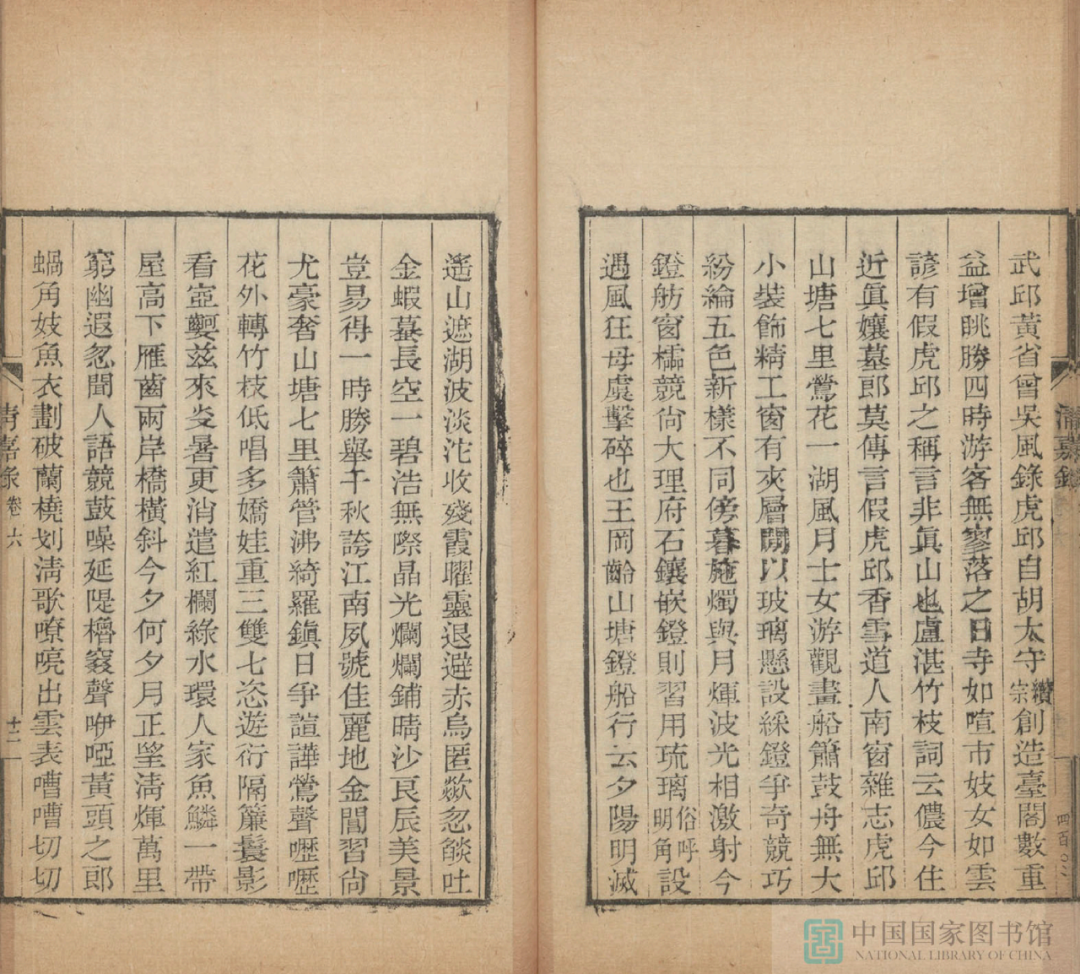 武邱黃省曾吳風錄虎邱自胡太守纘宗創造臺閣數重
益增眺勝四時游客無寥落之日寺如喧市妓女如雲
諺有假虎邱之稱言非眞山也盧湛竹枝詞云儂今住
近眞孃墓郎莫傳言假虎邱香雪道人南窗雜志虎邱
山塘七里鶯花一湖風月士女游觀畫船簫鼓舟無大
小裝飾精工窗有夾層開以玻璃懸設綵鐙爭奇競巧
紛綸五色新樣不同傍暮施燭與月煇波光相激射今
鐙舫窗櫺競尙大理府石鑲嵌鐙則習用琉璃俗呼明角設
遇風狂毋虞擊碎也王岡齡山塘鐙船行云夕陽明滅
遙山遮湖波淡沱收殘霞曜靈退避赤烏匿歘忽燄吐
金蝦蟇長空一碧浩無際晶光爛爛鋪晴沙良辰美景
豈易得一時勝舉千秋誇江南夙號佳麗地金閶習尙
尤豪奢山塘七里簫管沸綺羅鎮日爭諠譁鶯聲嚦嚦
花外轉竹枝低唱多嬌娃重三雙七恣遊衍隔簾鬟影
看宜顰茲來炎暑更消遣紅欄綠水環人家魚鱗一帶
屋高下雁齒兩岸橋橫斜今夕何夕月正望淸煇萬里
窮幽遐忽聞人語競鼓噪延隄櫓窡聲咿啞黃頭之郎
蝸角妓魚衣劃破蘭橈划淸歌嘹喨出雲表嘈嘈切切
淸嘉錄
淸嘉錄 卷六
十二
中国国家图书馆
NATIONAL LIBRARY OF CHINA